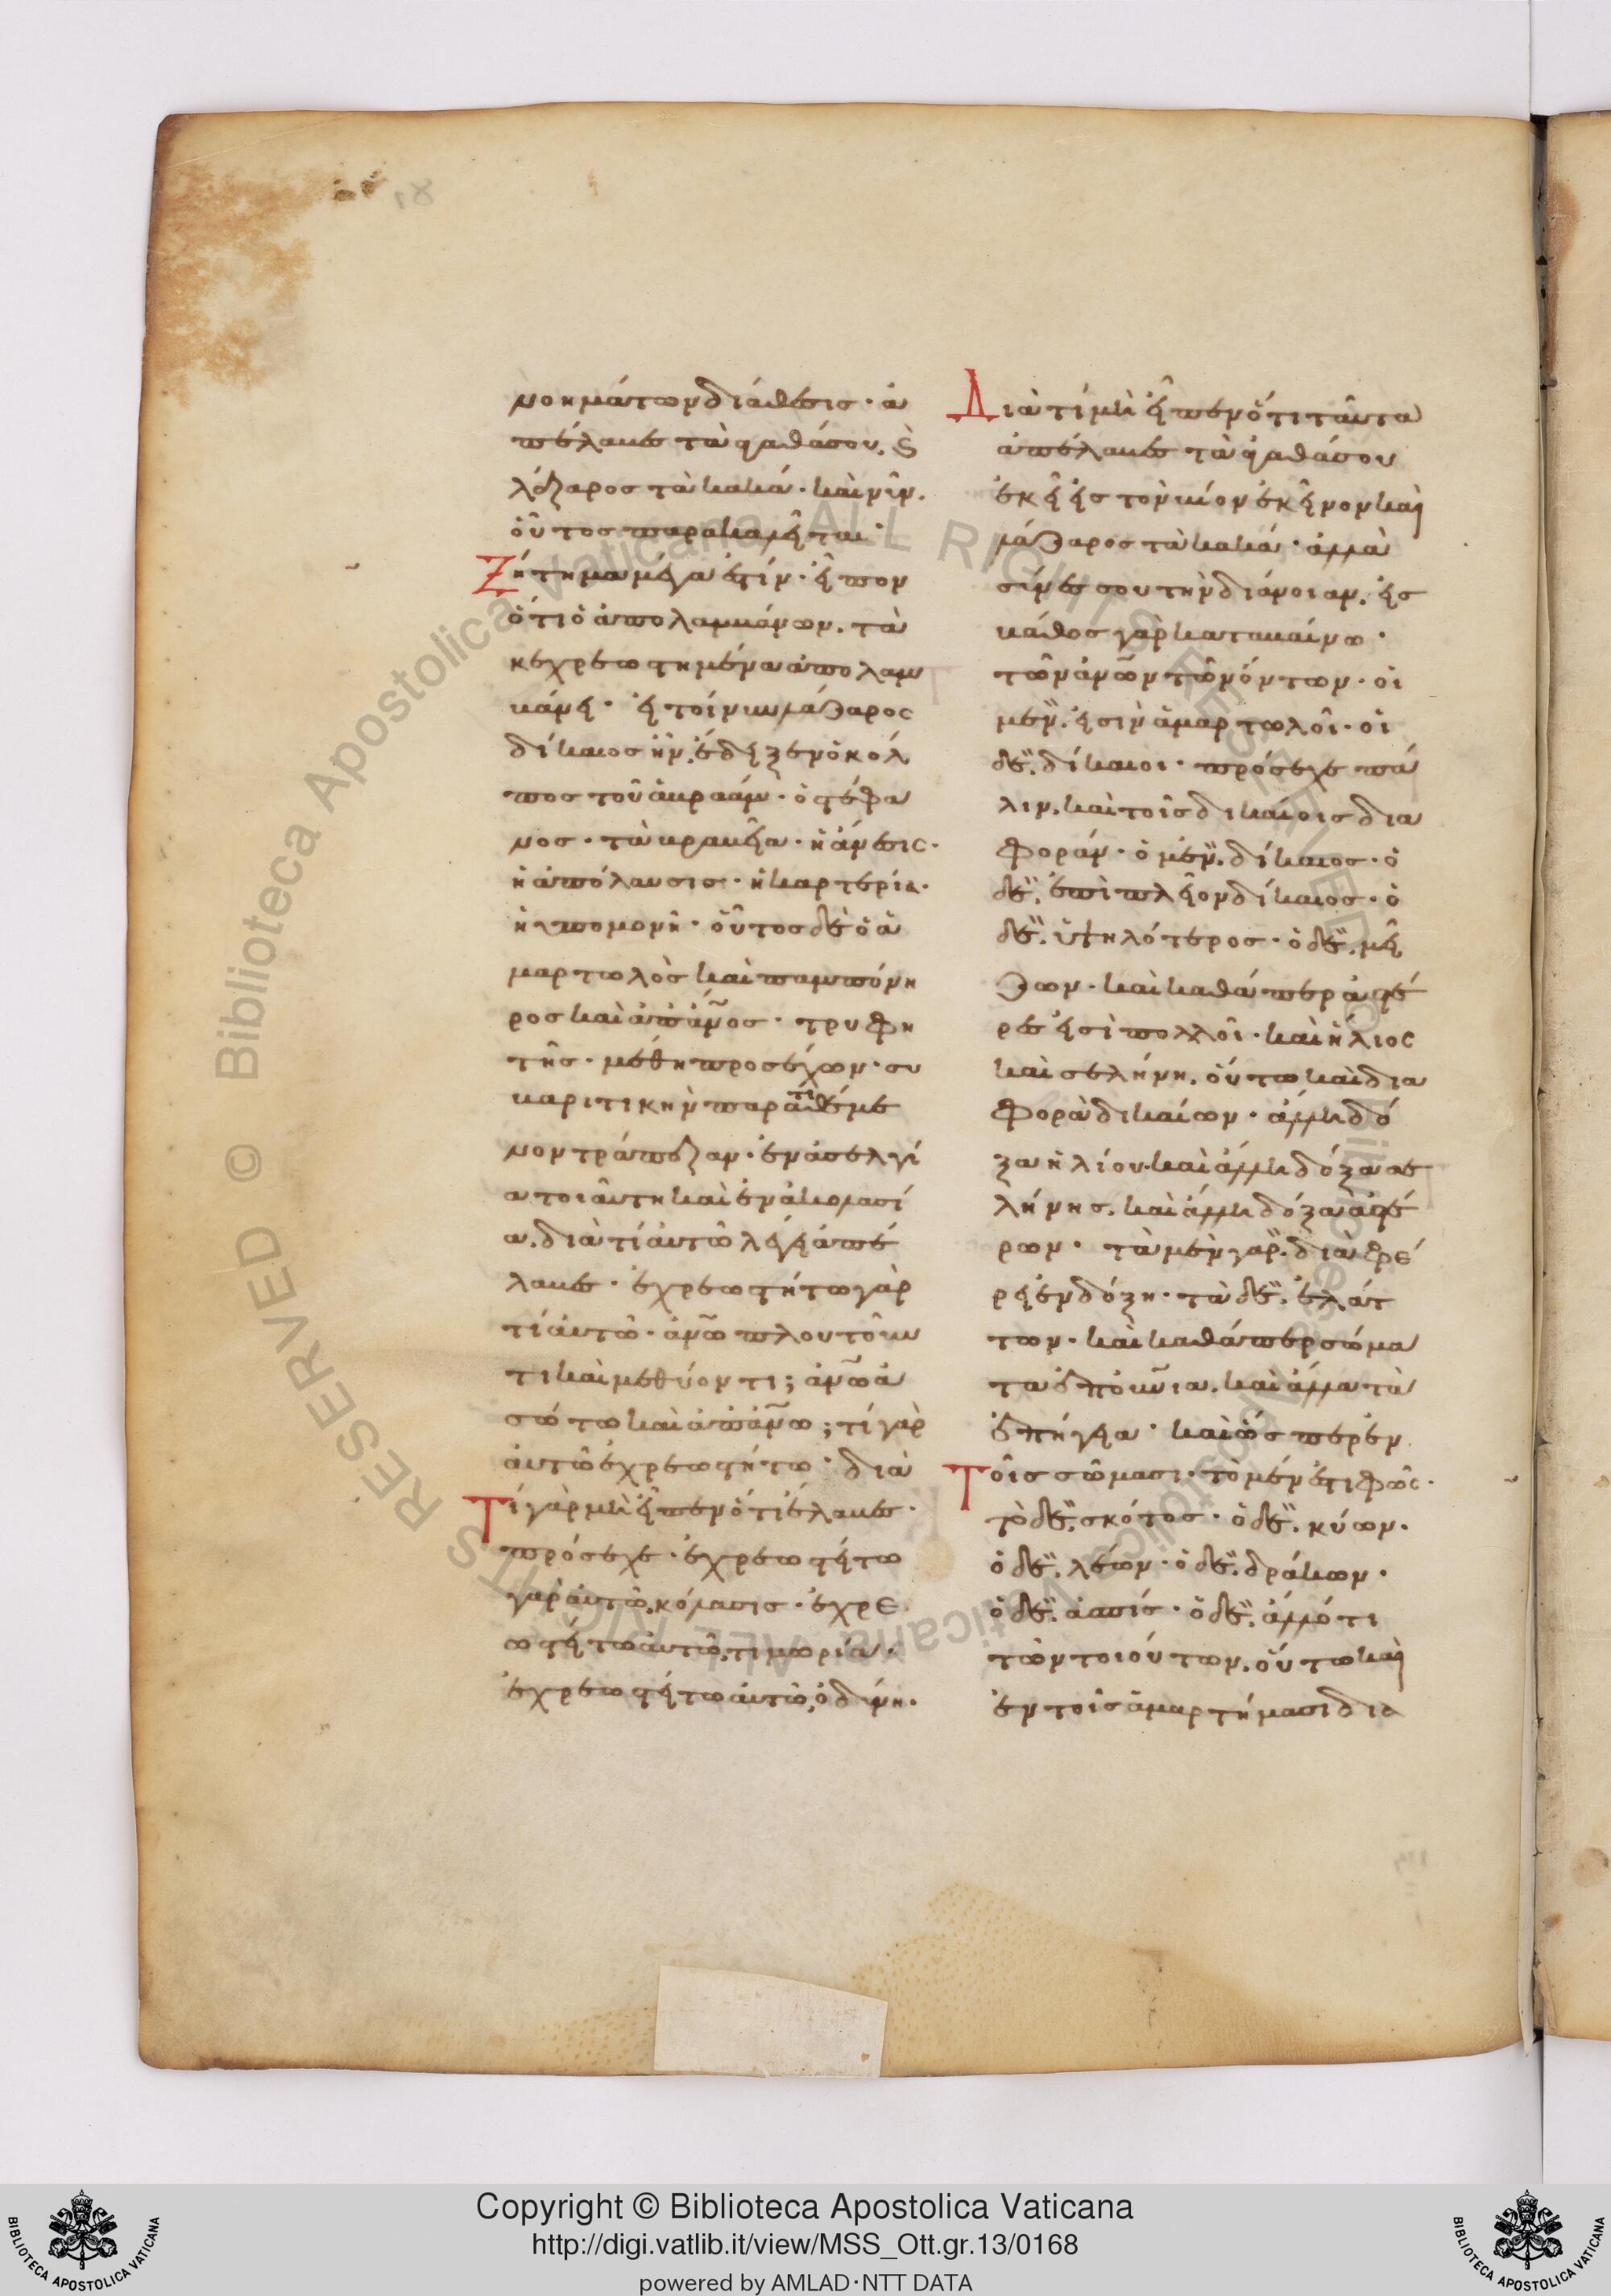 νοημάτων διάθεσις· ἀ
πέλαβες τὰ ἀγαθά σου. καὶ
λάζαρος τὰ κακά· καὶ νῦν.
οὗτος παρακαλεῖται·
Ζήτημα μέγα ἐστίν· εἶπον
ὅτι ὁ ἀπολαμβάνων. τὰ
κεχρεωστημένα ἀπολαμ
βάνει· εἰ τοίνυν λάζαρος
δίκαιος ἦν. ἔδειξεν ὁ κόλ
πος τοῦ ἀβραάμ· ὁ στέφα
νος· τὰ βραβεῖα· ἡ ἄνεσις·
ἡ ἀπόλαυσις· ἡ καρτερία·
ἡ ὑπομονή· οὗτος δὲ ὁ ἁ
μαρτωλὸς καὶ παμπόνη
ρος καὶ ἀπάν̅ο̅ς· τρυφη
τῆς· μέθη προσέχων· συ
βαριτικὴν παρατιθέμε
νον τράπεζαν· ἐν ἀσελγί
α τοιαύτη καὶ ἐν ἀκολασί
α. διὰ τί αὐτῶ λέγει ἀπέ
λαβες· ἐχρεωστήτω γὰρ
τί αὐτῶ· ἀν̅ω̅ πλουτοῦν
τι καὶ μεθύοντι; ἀν̅ω̅ ἀ
σώτω καὶ ἀπάν̅ω̅; τί γὰρ
αὐτῶ ἐχρεωστήτω· διὰ
Τί γὰρ μὴ εἶπεν ὅτι ἔλαβες·
πρόσεχε· ἐχρεωστήτω
γὰρ αὐτῶ. κόλασις· ἐχρε
ωστήτω αὐτῶ. τιμωρία·
ἐχρεωστήτω αὐτῶ, ὀδύνη·
Διὰ τί μὴ εἶπεν ὅτι ταῦτα
ἀπέλαβες τὰ ἀγαθά σου
ἐκεῖ εἰς τὸν βίον ἐκεῖνον καὶ
λάζαρος τὰ κακά· ἀλλὰ
σύνες σου τὴν διάνοιαν. εἰς
βάθος γὰρ καταβαίνω·
τῶν ἀν̅ω̅ν τῶν ὄντων· οἱ
μὲν. εἰσὶν ἁμαρτωλοί· οἱ
δὲ. δίκαιοι· πρόσεχε πά
λιν. καὶ τοῖς δικαίοις δια
φοράν· ὁ μὲν. δίκαιος· ὁ
δὲ. ἐπὶ πλεῖον δίκαιος· ὁ
δὲ. ὑψηλότερος· ὁ δὲ. μεί
ζων· καὶ καθάπερ ἀστέ
ρες εἰσὶ πολλοί· καὶ ἥλιος
καὶ σελήνη. οὕτω καὶ δια
φορὰ δικαίων· ἄλλη δό
ξα ἡλίου. καὶ ἄλλη δόξα σε
λήνης. καὶ ἄλλη δόξα ἀστέ
ρων· τὰ μὲν γὰρ. διαφέ
ρει ἐν δόξη· τὰ δὲ. ἐλάτ
των· καὶ καθάπερ σώμα
τα ἐπουν̅ια. καὶ ἄλλα τὰ
ἐπήγεια· καὶ ὥσπερ ἐν
Τοῖς σώμασι· τὸ μέν ἐστι φῶς·
τὸ δὲ. σκότος· ὁ δὲ. κύων·
ὁ δὲ. λέων· ὁ δὲ. δράκων·
ὁ δὲ. ἀσπίς· ὁ δὲ. ἄλλό τι
τῶν τοιούτων. οὕτω καὶ
ἐν τοῖς ἁμαρτήμασι δια
Copyright © Biblioteca Apostolica Vaticana
http://digi.vatlib.it/view/MSS_Ott.gr.13/0168
powered by AMLAD·NTT DATA